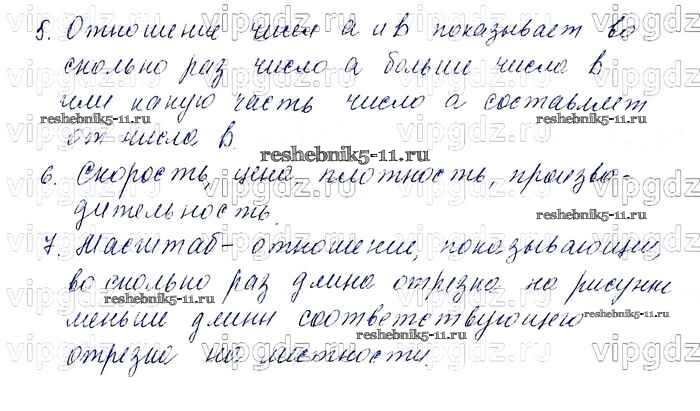 5. Отношение чисел а и в показывает во
сколько раз число а больше числа в
или какую часть число а составляет
reshebnik5-11.ru
reshebnik5-11.ru
от числа в
reshebnik5-11.ru
6. Скорость, цена плотность, произво-
дительность.
reshebnik5-11.ru
7. Масштаб - отношение, показывающий,
во сколько раз длина отрезка на рисунке
reshebnik5-11.ru
меньше длины соответствующего
reshebnik5-11.ru
отрезка на местности.
reshebnik5-11.ru
vipgdz.ru